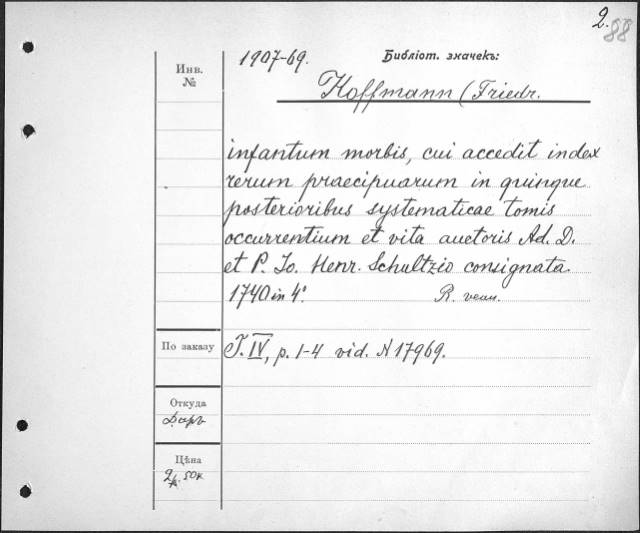 2.
88
1907-69.
Библіот. значекъ:
Инв.
№
Hoffmann (Friedr.
infantum morbis, cui accedit index
rerum praecipuarum in quinque
posterioribus systematicae tomis
occurrentium et vita auctoris Ad. D.
et P. Jo. Henr. Schultzio consignata
1740 in 4°.
По заказу
T. IV, p. 1-4 vid. N 17969.
Откуда
Даръ
Цѣна
50к